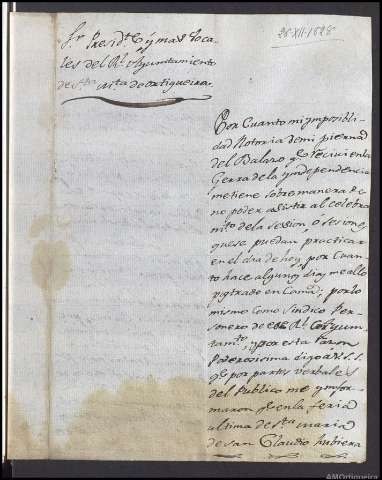 28-XII-1828
Sr. Presidte. y mas Voca-
les del Rl. Ayuntamiento
de Sta. Marta de Ortigueira.
Por Cuanto mi ymposibili-
dad Notoria de mi pierna
del Balazo qe. recici en la
Gerra de la yndependencia
metiene sobremanera de
no poder asistir al celebra
mto. de la session, o sesiong
quese puedan practicar
en el dia de hoy, por Cuan
to hace algung diag me allo
postrado en Cama; por lo
mismo como Sindico Per-
sonero de ese Rl. Ayun-
tamto., y por esta Razon
Poderosisima digo a V.S.S.
qe. por partes verbales
del Publico me ynfor-
maron qe. en la feria
ultima de Sta. Maria
de San Claudio hubiera
AMOrtigueira